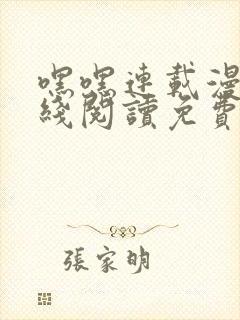 嘿嘿連載漫
綫閱讀免費
張家明